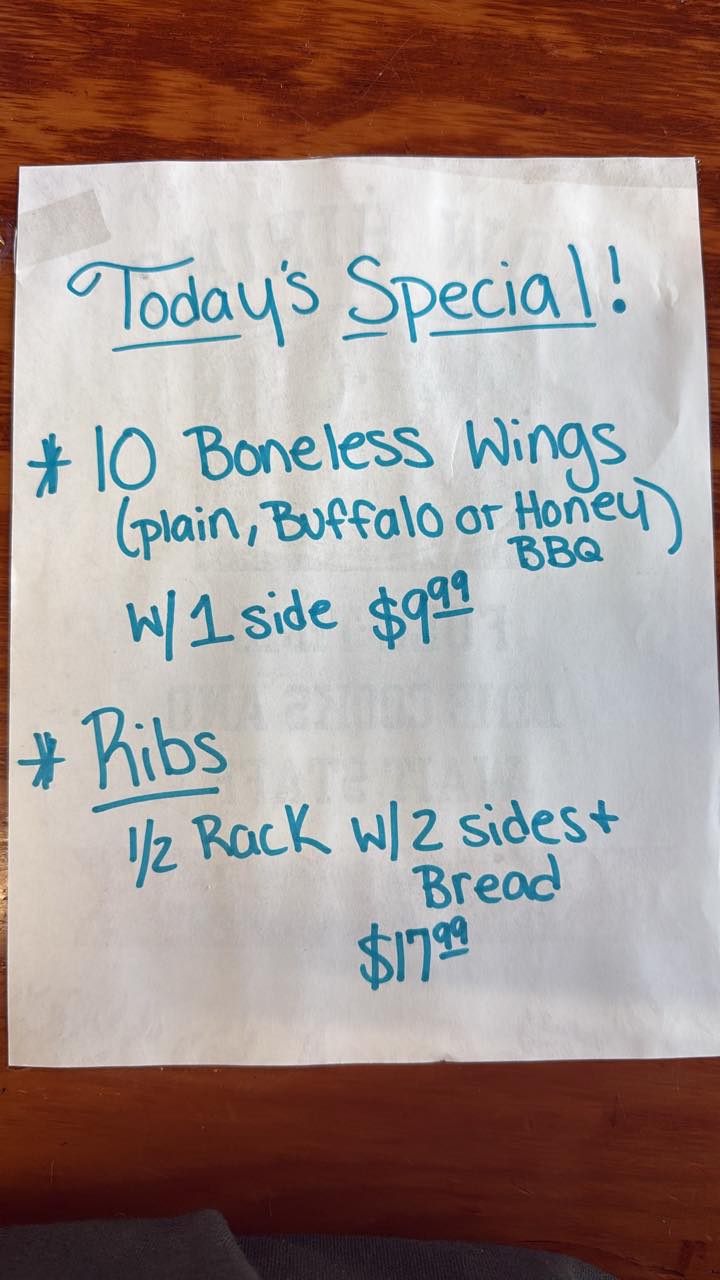 Today's Special!
* 10 Boneless Wings
(plain, Buffalo or Honey)
BBQ
W/1 side $9.99
* Ribs
1/2 Rack W/2 sides +
Bread
$17.99
COOKS AND